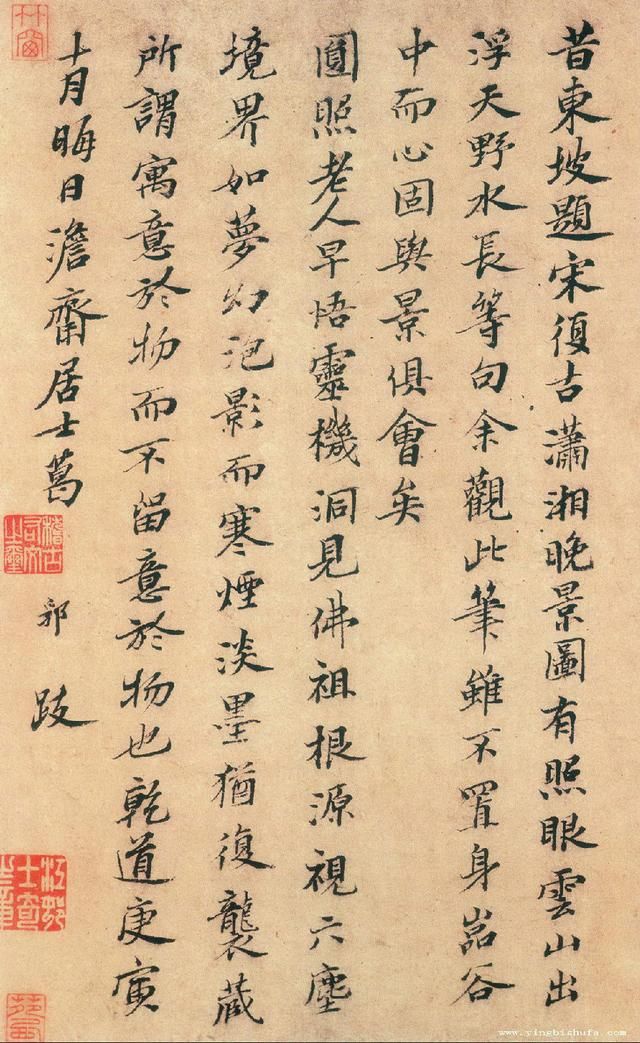 昔東坡題宋復古瀟湘晚景圖有照眼雲山出
浮天野水長等句余觀此筆雖不置身嵓谷
中而心固與景俱會矣
圓照老人早悟靈機洞見佛祖根源視六塵
境界如夢幻泡影而寒煙淡墨猶復襲藏
所謂寓意於物而不留意於物也乾道庚寅
十月晦日澹齋居士葛 郛 跋
竹窗
稽古右文之璽
江邨
士奇之章
www.yingbishufa.com